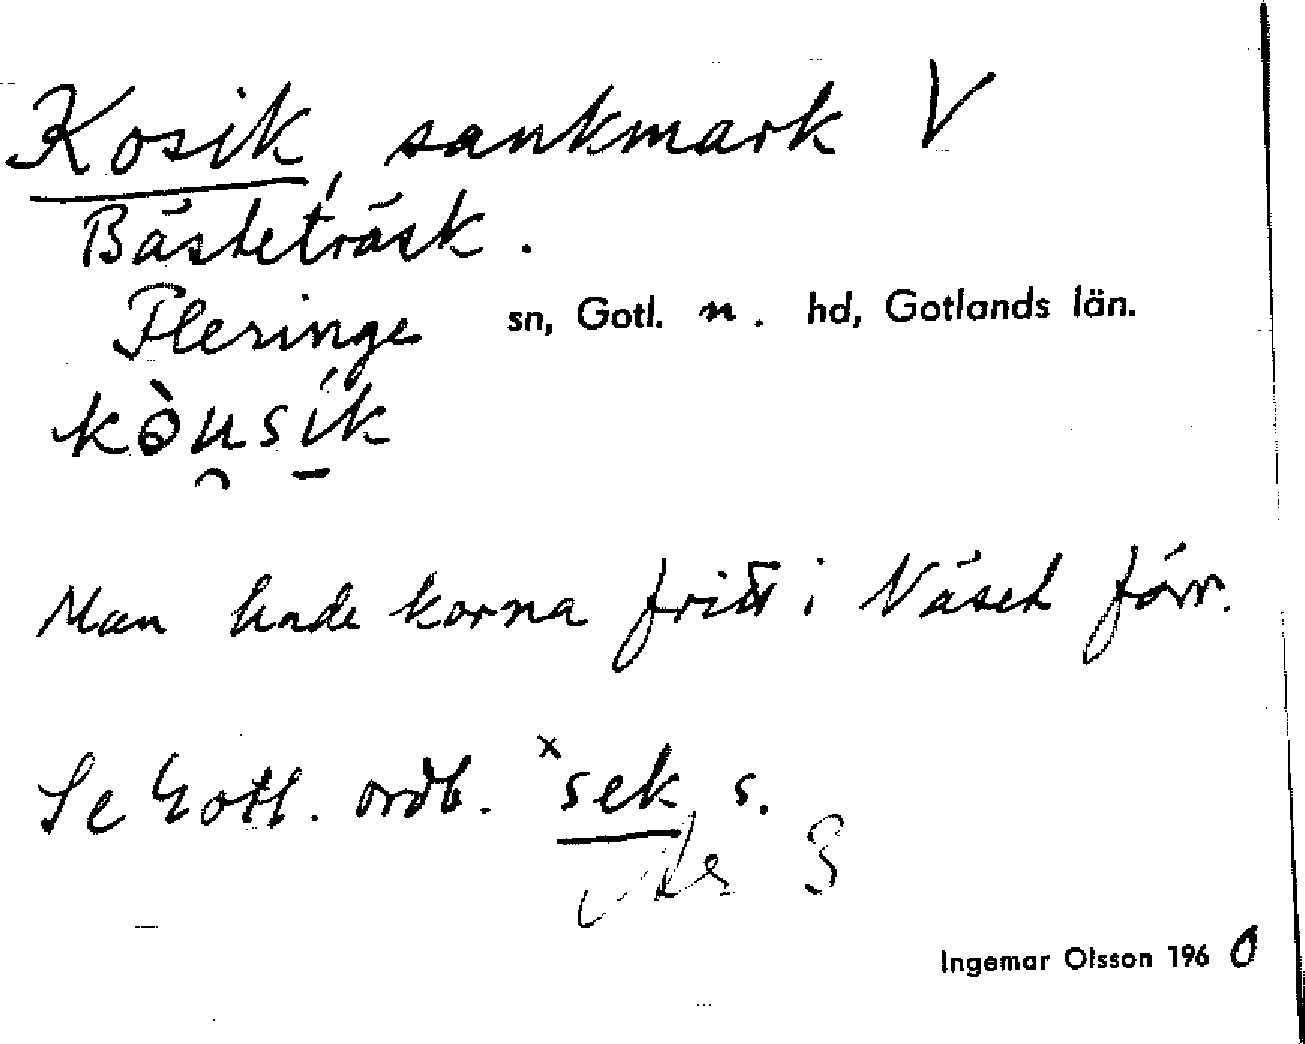 Kosik, sankmark V
Bästeträsk.
Fleringe sn, Gotl. n. hd, Gotlands län.
kòu̯sí̱k
Man hade korna fritt i Näset förr.
Se Gotl. ordb. ˣsek s.
S
Ingemar Olsson 1960